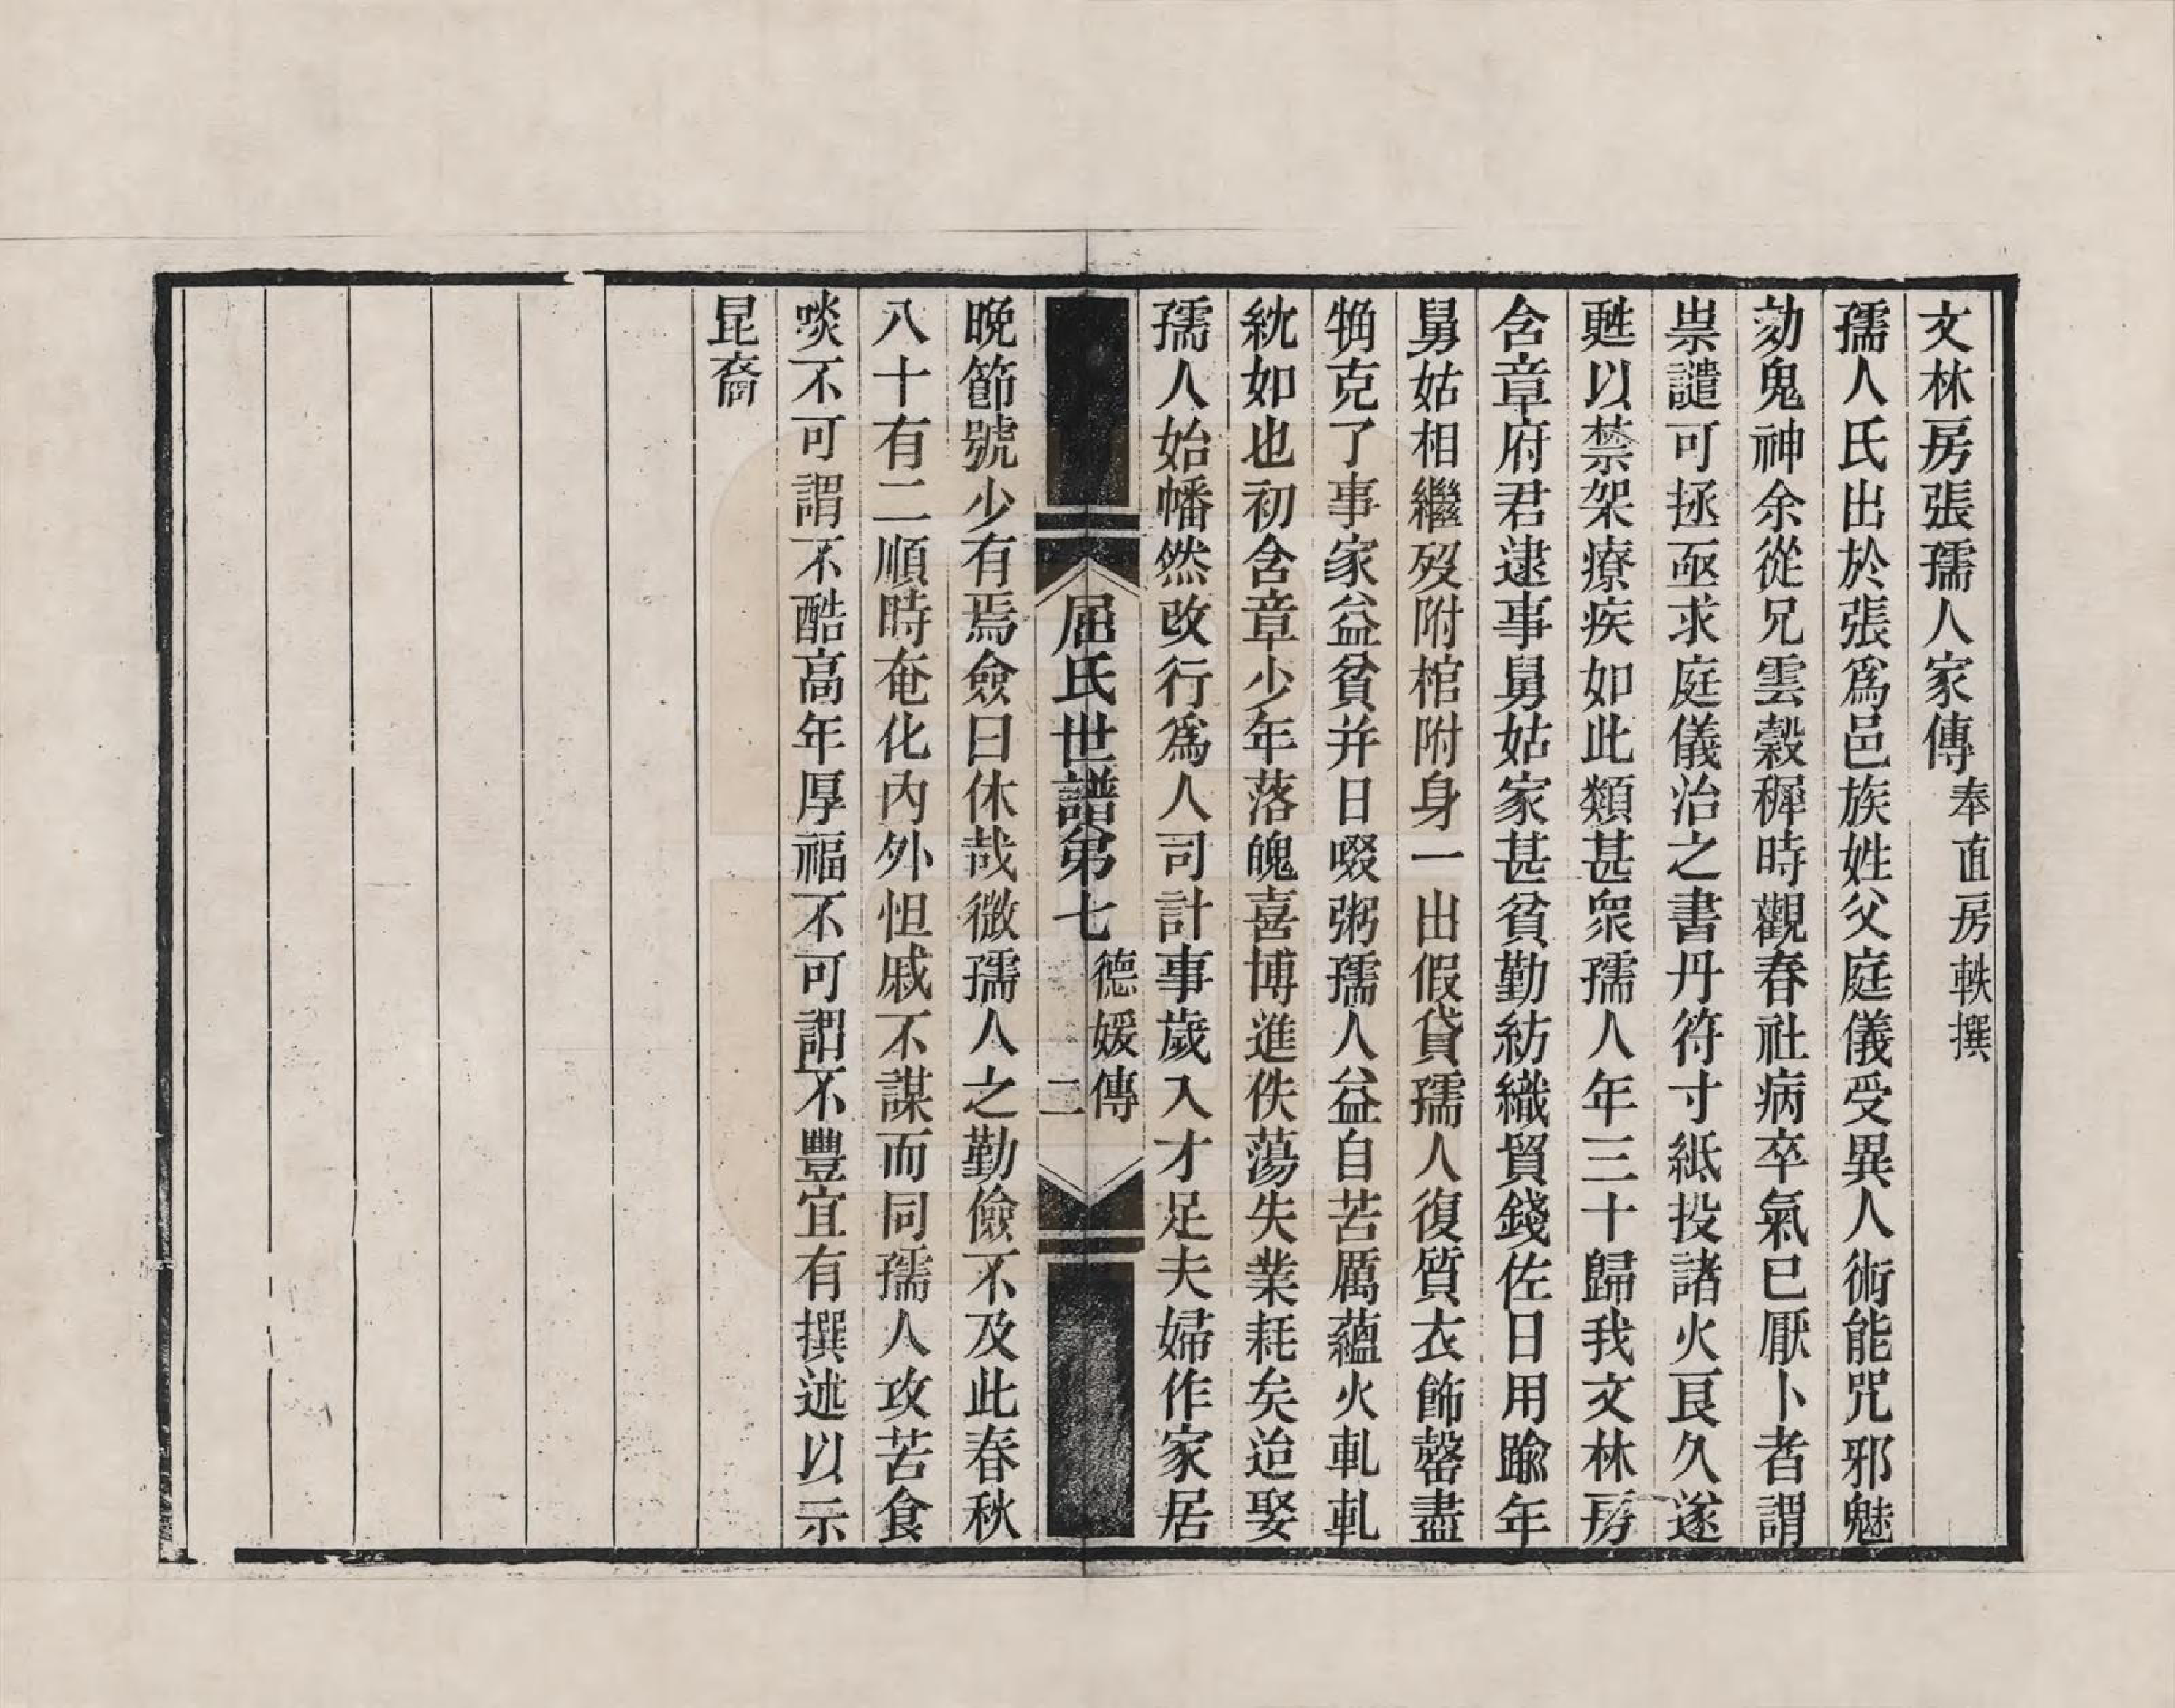 文林房張孺人家傳 奉直房軼撰
孺人氏出於張爲邑族姓父庭儀受異人術能咒邪魅
劾鬼神余從兄雲穀穉時觀春社病卒氣已厭卜者謂
祟譴可拯亟求庭儀治之書丹符寸紙投諸火良久遂
甦以禁架療疾如此類甚衆孺人年三十歸我文林房
含章府君逮事舅姑家甚貧勤紡織貿錢佐日用踰年
舅姑相繼歿附棺附身一出假貸孺人復質衣飾罄盡
觕克了事家益貧并日啜粥孺人益自苦厲蘊火軋軋
紞如也初含章少年落魄喜博進佚蕩失業耗矣迨娶
孺人始幡然改行爲人司計事歲入才足夫婦作家居
屈氏世譜第七 德媛傳 二
晚節號少有焉僉曰休哉微孺人之勤儉不及此春秋
八十有二順時奄化內外怛戚不謀而同孺人攻苦食
啖不可謂不酷高年厚福不可謂不豐宜有撰述以示
昆裔